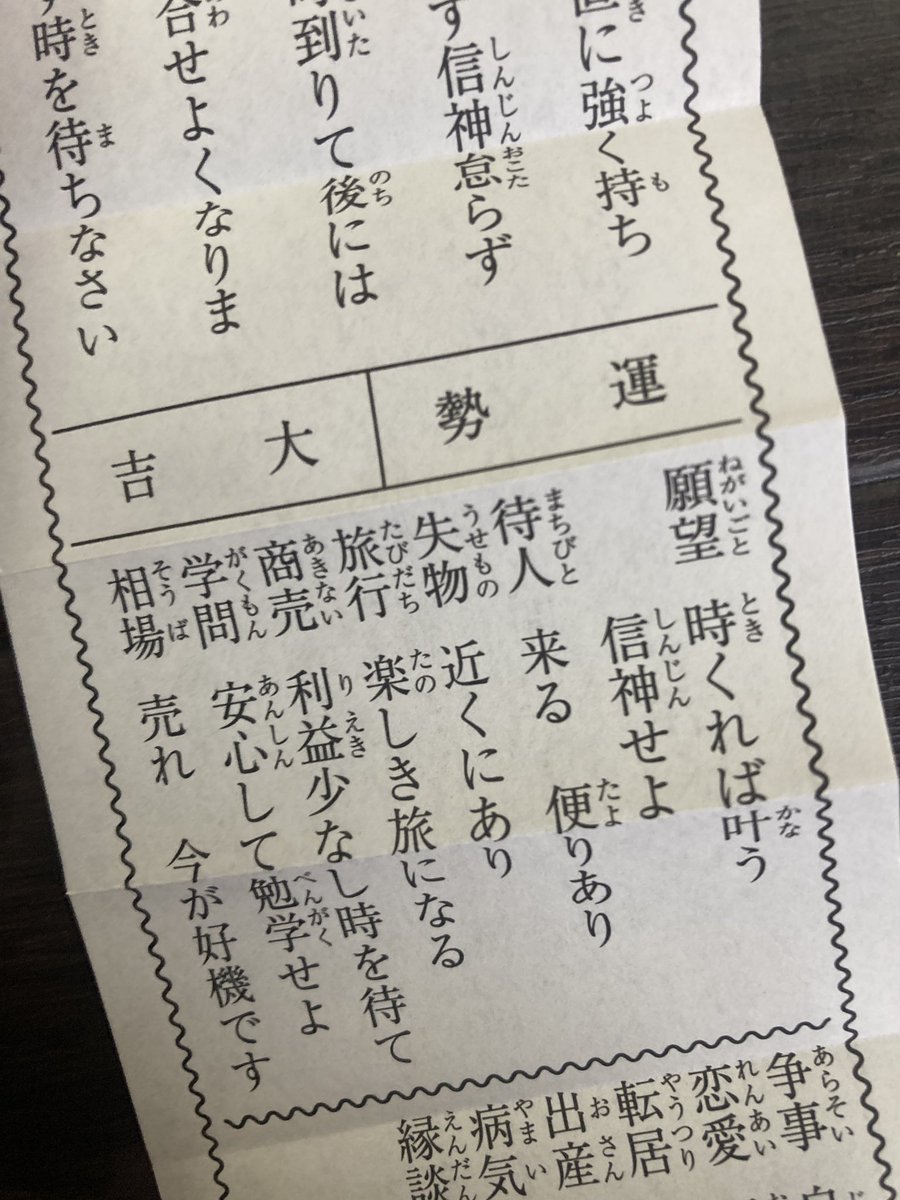 に強く持ち
信神怠らず
到りて後には
合せよくなりま
時を待ちなさい
運勢
大吉
願望 時くれば叶う
信神せよ
待人 来る 便りあり
失物 近くにあり
旅行 楽しき旅になる
商売 利益少なし時を待て
学問 安心して勉学せよ
相場 売れ 今が好機です
争事
恋愛
転居
出産
病気
縁談